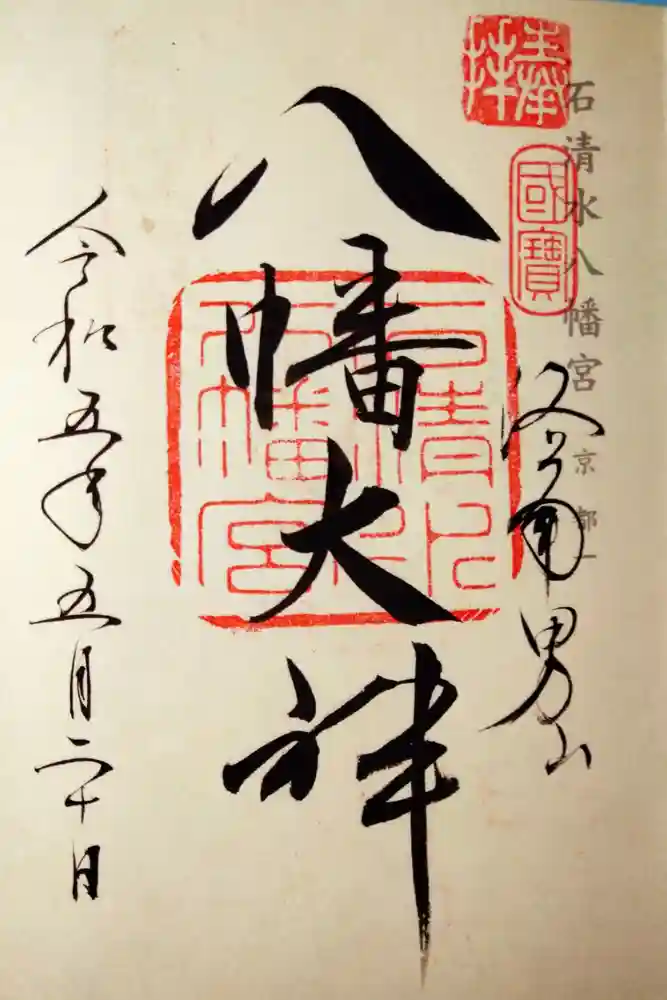 奉拝
國寶
石清水八幡宮 京都
洛南男山
八幡大神
石清水八幡宮
令和五年五月二十日